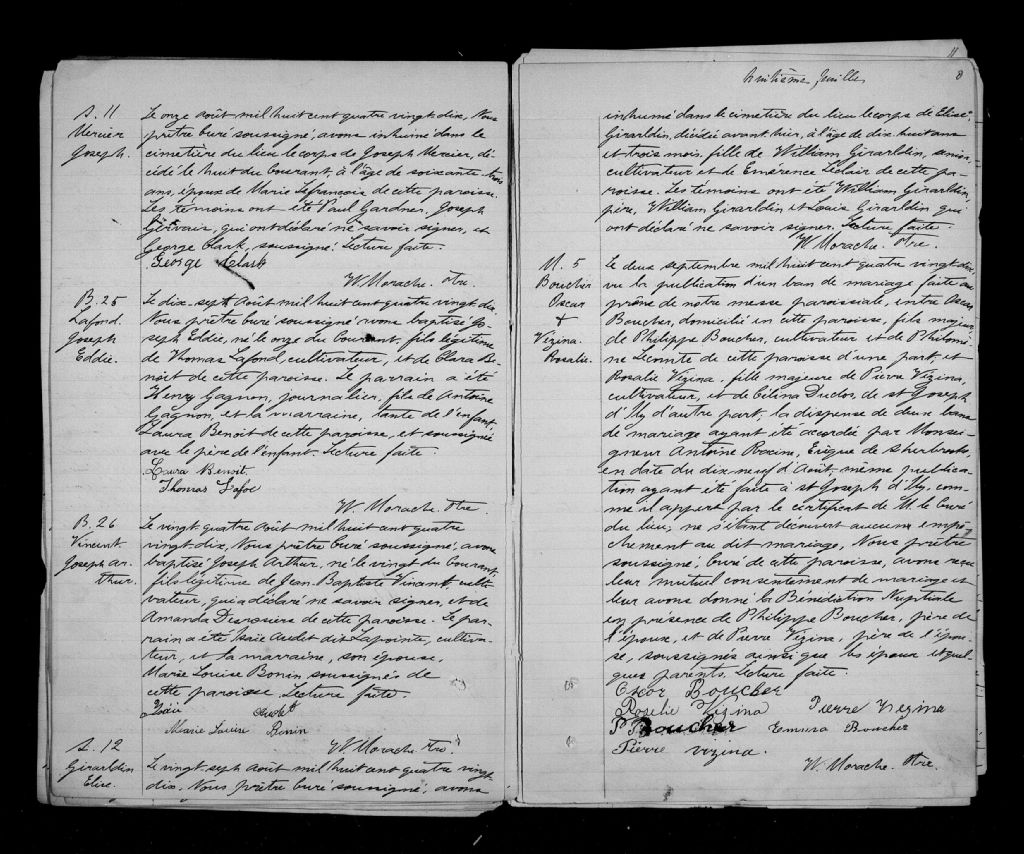 S. 11
Mercier
Joseph.
Le onze août mil huit cent quatre vingt dix, Nous
prêtre curé soussigné, avons inhumé dans le
cimetière du lieu le corps de Joseph Mercier, dé-
cédé le huit du courant, à l'âge de soixante-trois
ans, époux de Marie Lefrancois de cette paroisse.
Les témoins ont été Paul Gardner, Joseph
Gervair, qui ont déclaré ne savoir signer, et
George Clark, soussigné. Lecture faite.
George Clark
W. Morache. Ptre.
B. 25
Lafond.
Joseph
Eddie.
Le dix-sept août mil huit cent quatre vingt dix,
Nous prêtre curé soussigné avons baptisé Jo-
seph Eddie, né le onze du courant, fils légitime
de Thomas Lafond cultivateur, et de Clara Be-
noit de cette paroisse. Le parrain a été
Henry Gagnon, journalier, fils de Antoine
Gagnon, et la marraine, tante de l'enfant,
Laura Benoit de cette paroisse, et soussigné
avec le père de l'enfant. Lecture faite.
Laura Benoit
Thomas Lafoe
W. Morache Ptre.
B. 26
Vincent.
Joseph Ar-
thur.
Le vingt quatre août mil huit cent quatre
vingt dix, Nous prêtre curé soussigné, avons
baptisé Joseph Arthur, né le vingt du courant,
fils légitime de Jean-Baptiste Vincent, culti-
vateur, qui a déclaré ne savoir signer, et de
Amanda Desrosiers de cette paroisse. Le par-
rain a été Isaie Audet dit Lapointe, cultiva-
teur, et la marraine, son épouse,
Marie Louise Bonin soussignés de
cette paroisse. Lecture faite.
Isaïe Audet
Marie Louise Bonin
W. Morache Ptre.
S. 12
Girardin
Elise.
Le vingt sept août mil huit cent quatre vingt
dix, Nous prêtre curé soussigné, avons
11
8
huitième feuille
inhumé dans le cimetière du lieu le corps de Elise
Girardin, décédée avant hier, à l'âge de dix huit ans
et trois mois, fille de William Girardin, senior,
cultivateur et de Emérence Leclair de cette pa-
roisse. Les témoins ont été William Girardin,
père, William Girardin et Louis Girardin qui
ont déclaré ne savoir signer. Lecture faite.
W. Morache. Ptre.
M. 5
Boucher
Oscar
+
Vézina.
Rosalie.
Le deux septembre mil huit cent quatre vingt dix,
vu la publication d'un ban de mariage faite au
prône de notre messe paroissiale, entre Oscar
Boucher, domicilié en cette paroisse, fils majeur
de Philippe Boucher, cultivateur et de Philomè-
ne Lecomte de cette paroisse d'une part, et
Rosalie Vézina, fille majeure de Pierre Vézina,
cultivateur, et de Célina Duclos, de st Joseph
d'Ely d'autre part, la dispense de deux bans
de mariage ayant été accordée par Monsei-
gneur Antoine Racine, Evêque de Sherbrooke,
en date du dix-neuf d'Août, même publica-
tion ayant été faite à st Joseph d'Ely, com-
me il appert par le certificat de M. le curé
du lieu; ne s'étant découvert aucun empê-
chement au dit mariage, Nous prêtre
soussigné, curé de cette paroisse, avons reçu
leur mutuel consentement de mariage et
leur avons donné la Bénédiction Nuptiale
en présence de Philippe Boucher, père de
l'époux, et de Pierre Vézina, père de l'épou-
se, soussignés ainsi que les époux et quel-
ques parents. Lecture faite.
Oscar Boucher
Rosalie Vézina Pierre Vezina
P Boucher Emma Boucher
Pierre vezina.
W. Morache. Ptre.